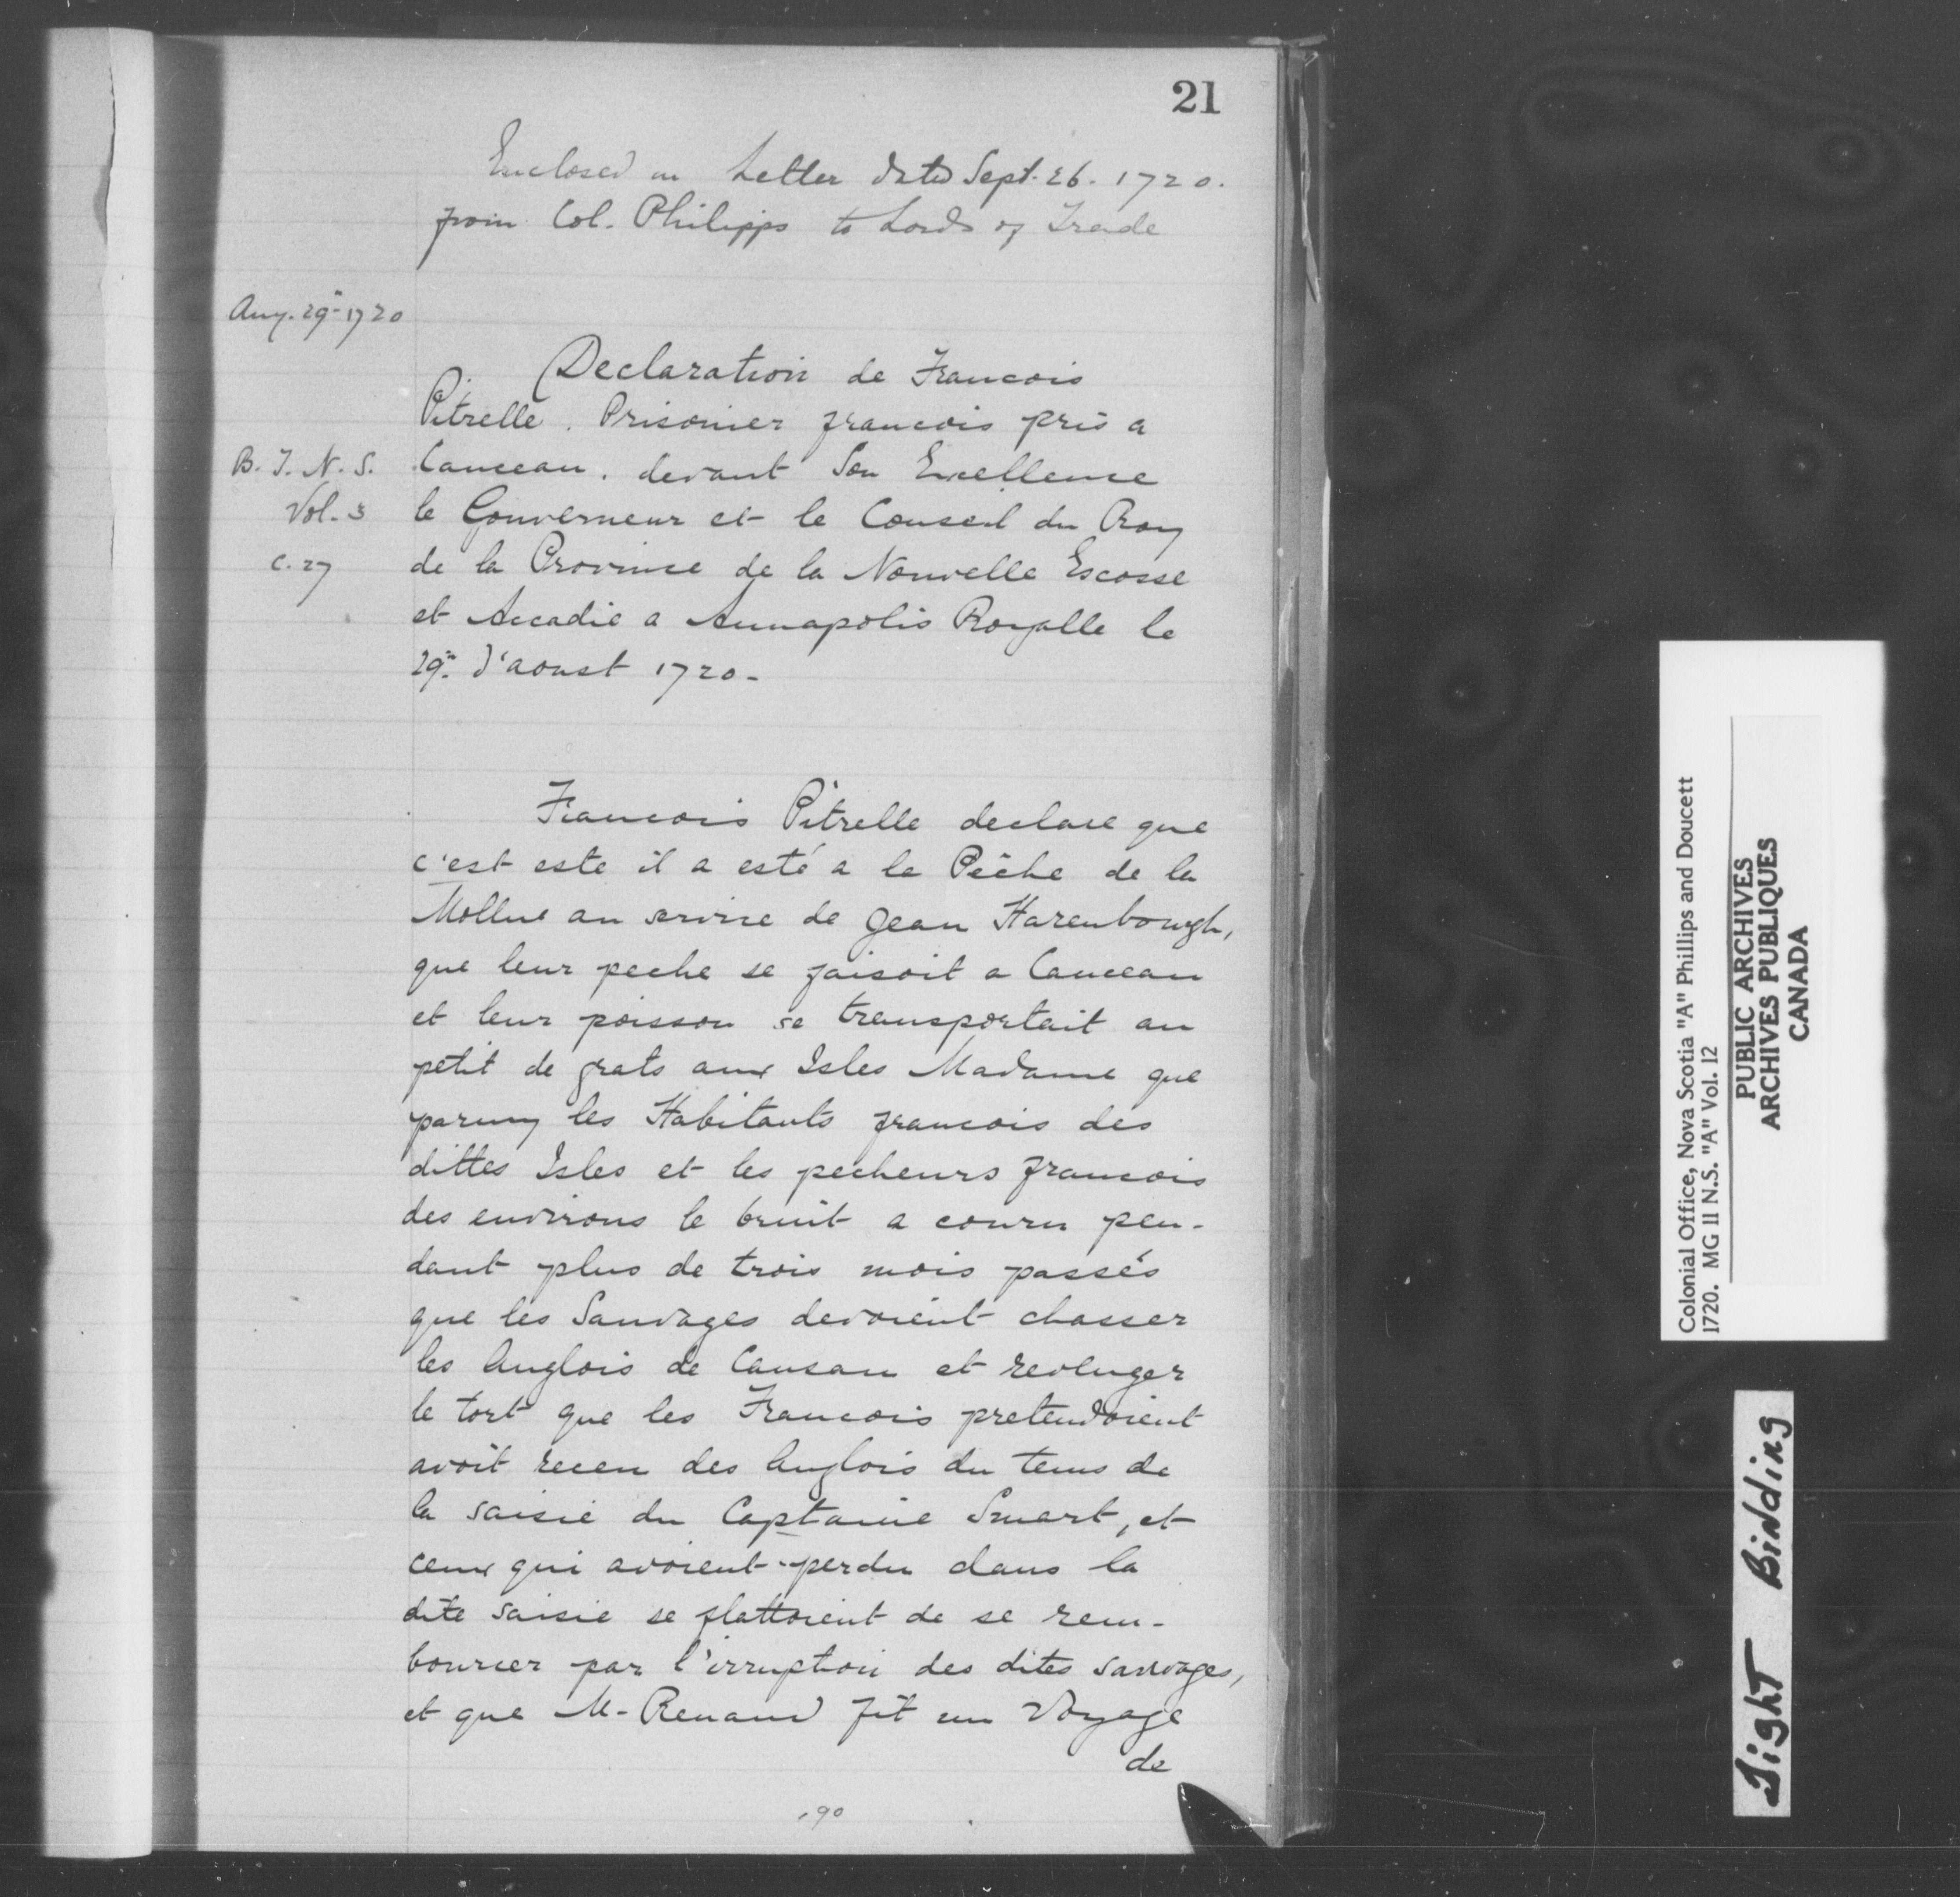 21
Enclosed in Letter dated Sept. 26. 1720.
from Col. Philipps to Lords of Trade
Aug. 29th 1720
Declaration de Francois
Pitrelle. Prisonier francois pris a
B. T. N. S.
Canceau. devant Son Excellence
Vol. 3
le Gouverneur et le Conseil du Roy
c. 27
de la Province de la Nouvelle Escosse
et Accadie a Annapolis Royalle le
29me d'aoust 1720-
Francois Pitrelle declare que
c'est este il a esté a la Pêche de la
Mollue au service de Jean Harenbough,
que leur peche se faisoit a Canceau
et leur poisson se transportait au
petit de grats aux Isles Madame que
parmy les Habitants francois des
dittes Isles et les pecheurs francois
des environs le bruit a couru pen-
dant plus de trois mois passés
que les Sauvages devoient chasser
les Anglois de Cansau et revenger
le tort que les Francois pretendoient
avoit receu des Anglois du tems de
la saisie du Captaine Smart, et
ceux qui avoient perdu dans la
dite saisie se flattoient de se rem-
bourcer par l'irruption des dites sauvages,
et que M- Renaud fit un Voyage
de
190
Colonial Office, Nova Scotia "A" Phillips and Doucett
1720. MG 11 N.S. "A" Vol. 12
PUBLIC ARCHIVES
ARCHIVES PUBLIQUES
CANADA
Tight Binding